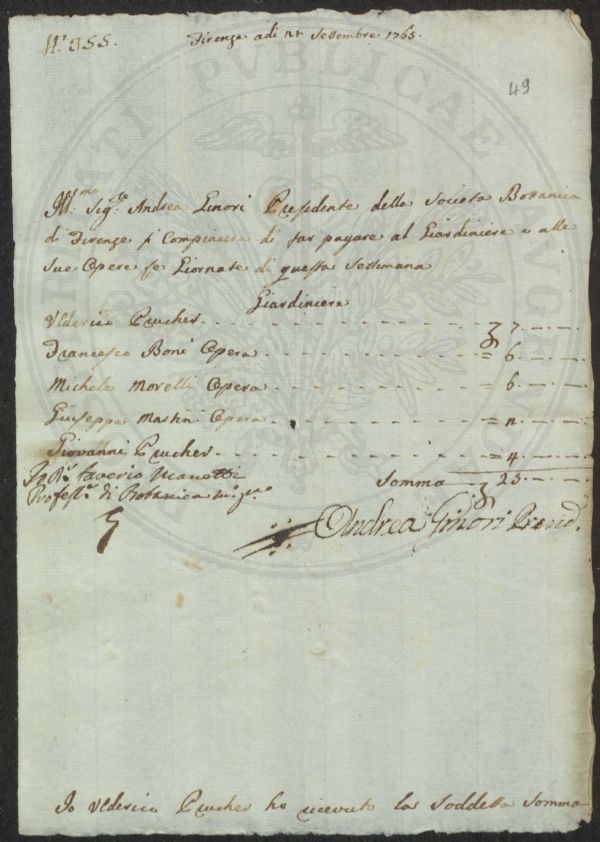 N.° 355. Firenze adi 21 Settembre 1765.
49
Ill.mo Sig.re Andrea Ginori Presidente della Societa Bottanica
di Firenze si Compiacera di far pagare al Giardiniere e alle
sue Opere per Giornate di questa Settimana
Giardiniere
Ulderico Prucher - - - 7 - -
Francesco Boni Opera - - - = 6 - -
Michele Morelli Opera - - - = 6 - -
Giuseppe Martini Opera - - - = 2 - -
Giovanni Prucher - - - = 4 - -
Somma - 25 - -
Saverio Manetti
Profess.re di Botanica
Andrea Ginori Presid.
Io Ulderico Prucher ho ricevuto la Soddetta Somma
PUBLICAE